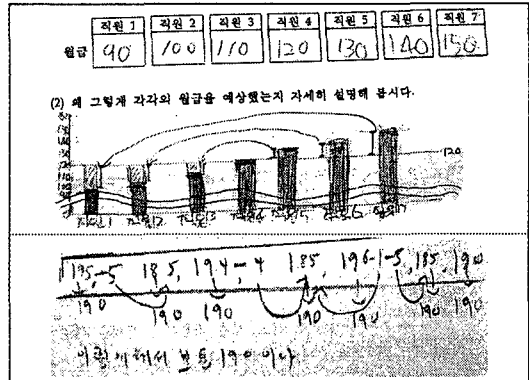 직원 1 직원 2 직원 3 직원 4 직원 5 직원 6 직원 7
월급 90 100 110 120 130 140 150
(2) 왜 그렇게 각각의 월급을 예상했는지 자세히 설명해 봅시다.
120
직원1 직원2 직원3 직원4 직원5 직원6 직원7
195,-5 185, 194,-4 185, 196-1-5, 185, 190
190 190 190 190 190 190 190
190 이다